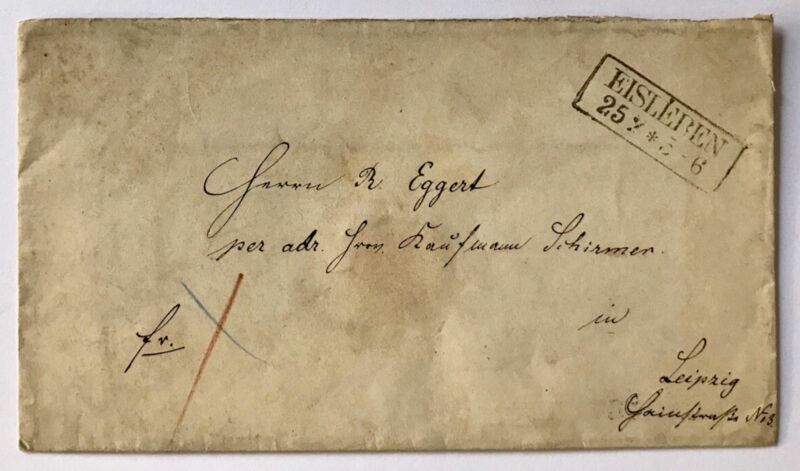 EISLEBEN
25 * 5-6
Herrn R. Eggert
per adr. Hrn. Kaufmann Schirmer.
fr.
in
Leipzig
Hainstraße